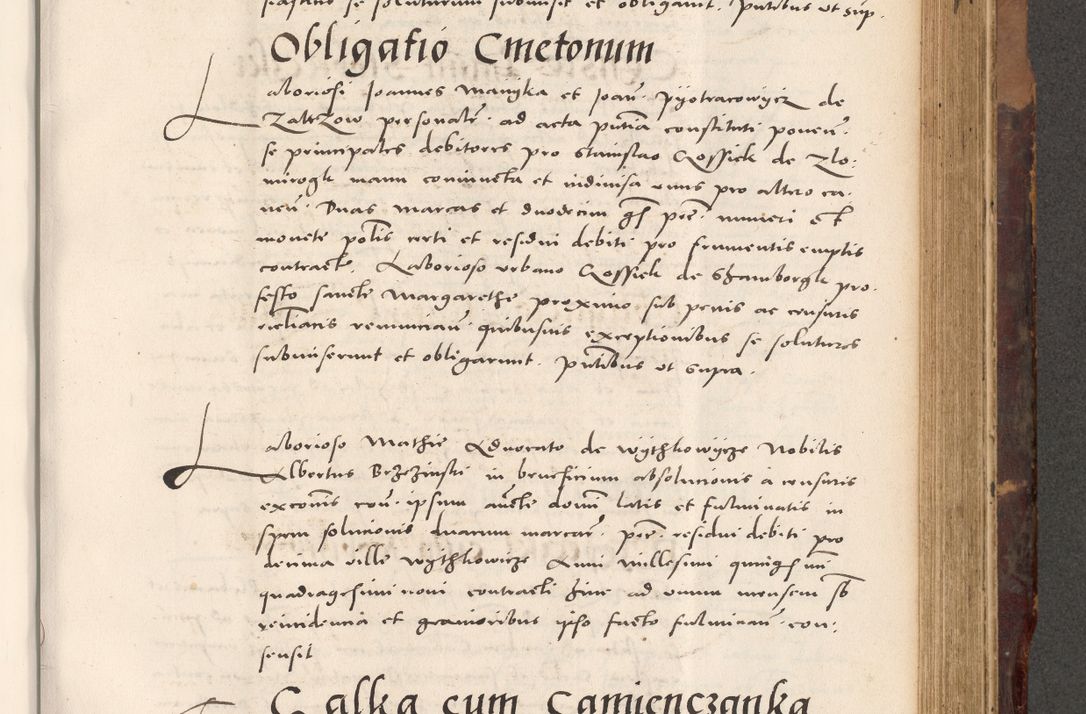 se soluturum submisit et obligavit. p̃ntibus ut sup.
Obligatio Cmetonum
Laboriosi Joannes Manijka et Joañ. Pijotracowycz de
Zalczow personalr̃. ad acta p̃ntia constituti poneñ.
se principales debitores pro Stanislao Kossiek de Zlo.
mirogk manu coniuncta et indivisa unus pro altero ca.
veñ. Duas marcas et duodecim gs̃ pec̃. numeri et
monete pol̃is certi et residui debiti pro frumentis emptis
contract. Laborioso urbano Kossiek de Szamborgk pro
festo sancte Margarethe proximo sub penis ac censuris
ecl̃iacis renunciañ. quibusvis exceptionibus se soluturos
submiserunt et obligarunt. p̃ntibus ut supra.
Laborioso Mathie Advocato de wythkowycze Nobilis
Albertus Brzezinski in beneficium absolucionis a censuris
excom̃is coñ. ipsum aucte domĩ latis et fulminatis in
spem solucionis duarum marcar̃. pec̃. residui debiti pro
decima ville wythkowicze Anni millesimi quingẽsimi
quadragesimi noni contracti hinc ad unum mensem sb̃
reincidencia et gravioribus ipso facto fulminañ. con.
sensit
Galka cum Camienczanka